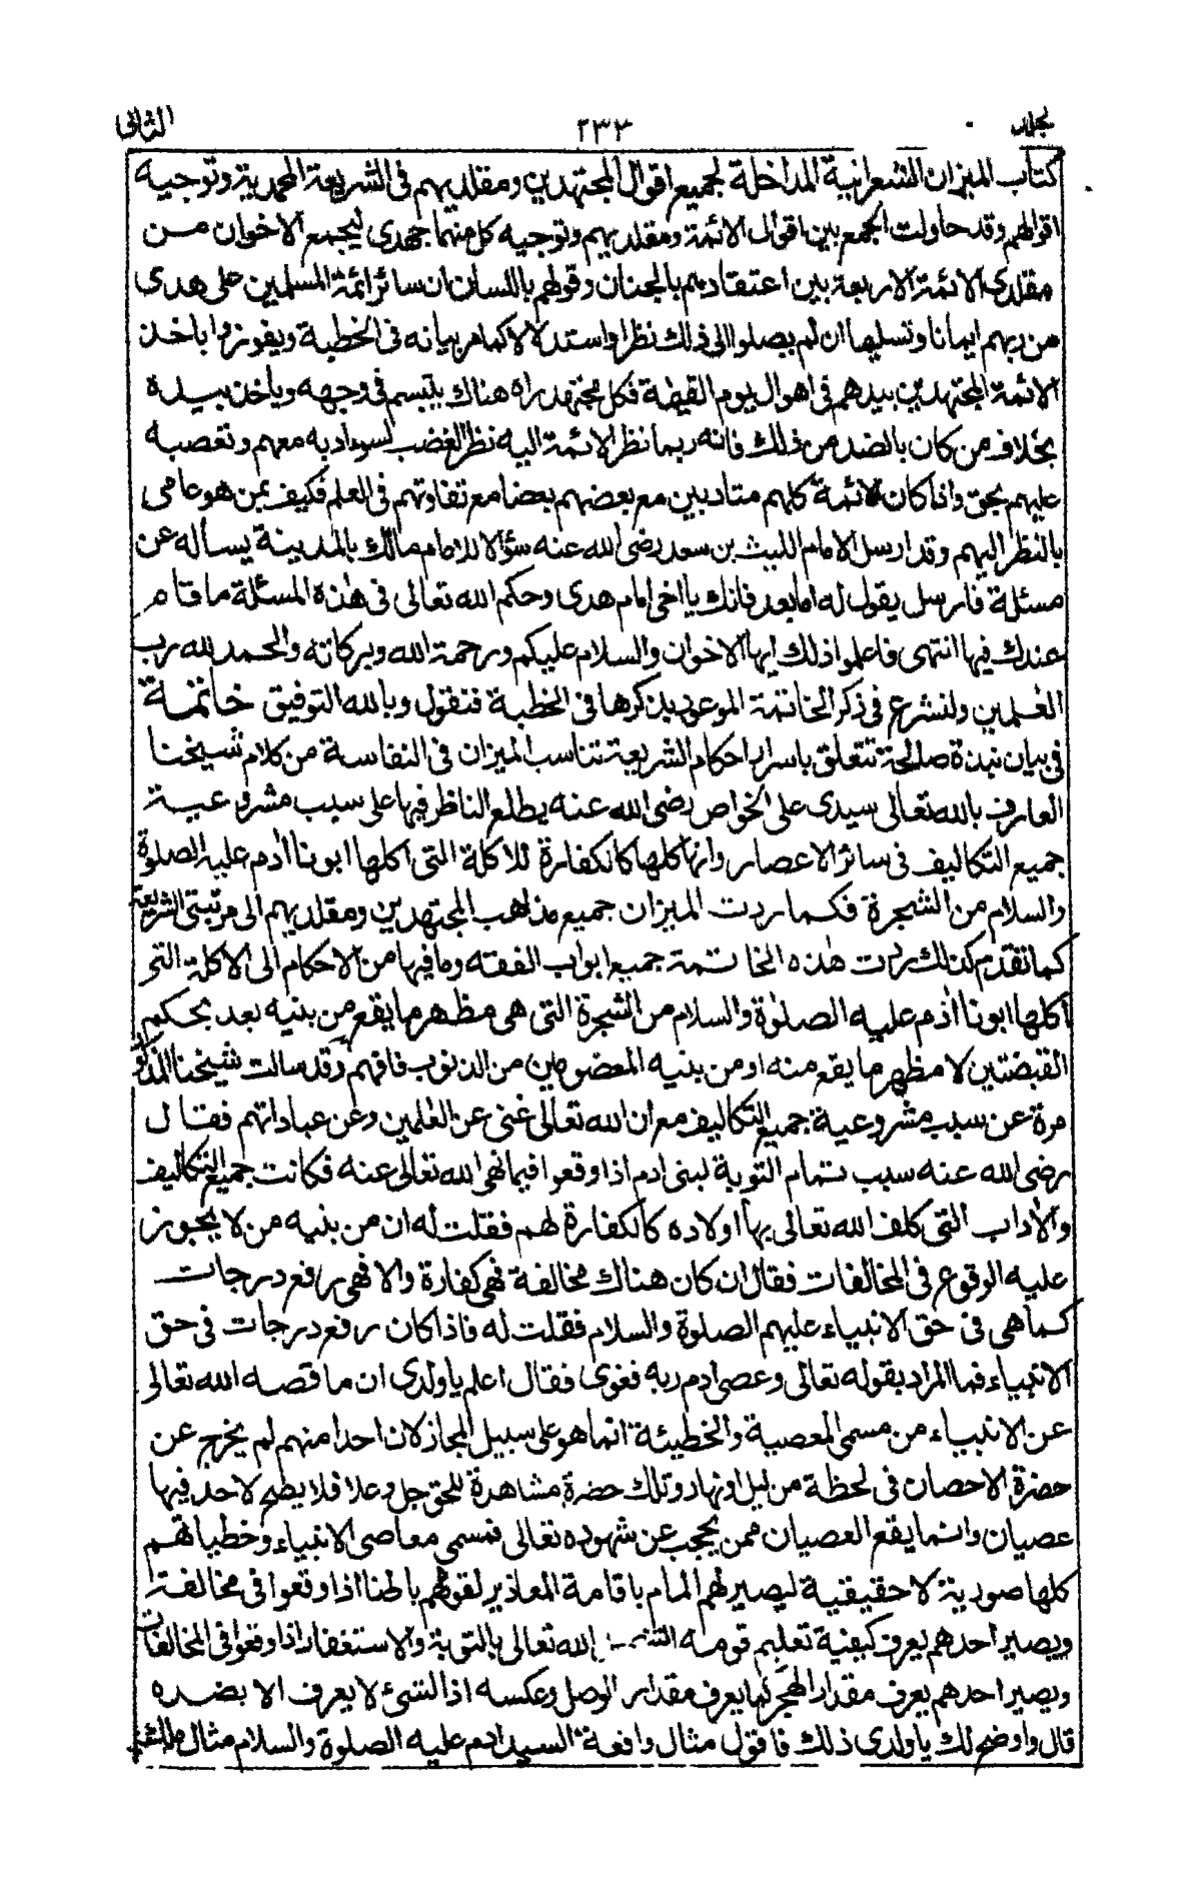 مجلد ٢٣٣ الثانى
كتاب الميزان الشعرانية المداخلة لجميع اقوال المجتهدين ومقلديهم فى الشريعة المحمدية وتوجيه
اقوالهم وقد حاولت الجمع بين اقوال الائمة ومقلديهم وتوجيه كل منهما جهدى ليجمع الاخوان من
مقلدى الائمة الاربعة بين اعتقادهم بالجنان وقولهم باللسان ان سائر ائمة المسلمين على هدى
من ربهم ايمانا وتسليما ان لم يصلوا الى ذلك نظرا واستدلالا كما مر بيانه فى الخطبة ويفوزوا باخذ
الائمة المجتهدين بيدهم فى اهوال يوم القيمة فكل مجتهد راه هناك يتبسم فى وجهه وياخذ بيده
بخلاف من كان بالضد من ذلك فانه ربما نظر الائمة اليه نظر الغضب لسوء ادبه معهم وتعصبه
عليهم بحق واذا كان الائمة كلهم متادبين مع بعضهم بعضا مع تفاوتهم فى العلم فكيف بمن هو عامى
بالنظر اليهم وقد ارسل الامام الليث بن سعد رضى الله عنه سؤالا للامام مالك بالمدينة يسأله عن
مسئلة فارسل يقول له اما بعد فانك يا اخى امام هدى وحكم الله تعالى فى هذه المسئلة ما قام
عندك فيها انتهى فاعلموا ذلك ايها الاخوان والسلام عليكم ورحمة الله وبركاته والحمد لله رب
العلمين ولنشرع فى ذكر الخاتمة الموعود بذكرها فى الخطبة فنقول وبالله التوفيق خاتمة
فى بيان نبذة صالحة تتعلق باسرار احكام الشريعة تناسب الميزان فى النفاسة من كلام شيخنا
العارف بالله تعالى سيدى على الخواص رضى الله عنه يطلع الناظر فيها على سبب مشروعية
جميع التكاليف فى سائر الاعصار وانها كلها كالكفارة للاكلة التى اكلها ابونا ادم عليه الصلوة
والسلام من الشجرة فكما ردت الميزان جميع مذاهب المجتهدين ومقلديهم الى مرتبتى الشريعة
كما تقدم كذلك ردت هذه الخاتمة جميع ابواب الفقه وما فيها من الاحكام الى الاكلة التى
اكلها ابونا ادم عليه الصلوة والسلام من الشجرة التى هى مظهر ما يقع من بنيه بعد بحكم
القبضتين لا مظهر ما يقع منه او من بنيه المعصومين من الذنوب فافهم وقد سالت شيخنا المذكور
مرة عن سبب مشروعية جميع التكاليف مع ان الله تعالى غنى عن العلمين وعن عباداتهم فقال
رضى الله عنه سبب تمام التوبة لبنى ادم اذا وقعوا فيما نهى الله تعالى عنه فكانت جميع التكاليف
والأداب التى كلف الله تعالى بها اولاده كالكفارة لهم فقلت له ان من بنيه من لا يجوز
عليه الوقوع فى المخالفات فقال ان كان هناك مخالفة فهى كفارة والا فهى رفع درجات
كما هى فى حق الانبياء عليهم الصلوة والسلام فقلت له فاذا كان رفع درجات فى حق
الانبياء فما المراد بقوله تعالى وعصى ادم ربه فغوى فقال اعلم يا ولدى ان ما قصه الله تعالى
عن الانبياء من مسمى المعصية والخطيئة انما هو على سبيل المجاز لان احدا منهم لم يخرج عن
حضرة الاحصان فى لحظة من ليل او نهار وتلك حضرة مشاهدة للحق جل وعلا فلا يصح لاحد فيها
عصيان وانما يقع العصيان ممن يحجب عن شهوده تعالى فمسمى معاصى الانبياء وخطياتهم
كلها صورية لا حقيقية ليصير لهم المام باقامة المعاذير لقولهم باطنا اذا وقعوا فى مخالفة
ويصير احدهم يعرف كيفية تعليم قومه الى الله تعالى بالتوبة والاستغفار اذا وقعوا فى المخالفات
ويصير احدهم يعرف مقدار الهجر كما يعرف مقدار الوصل وعكسه اذ الشئ لا يعرف الا بضده
قال واوضح لك يا ولدى ذلك فاقول مثال واقعة السيد ادم عليه الصلوة والسلام مثال ملك